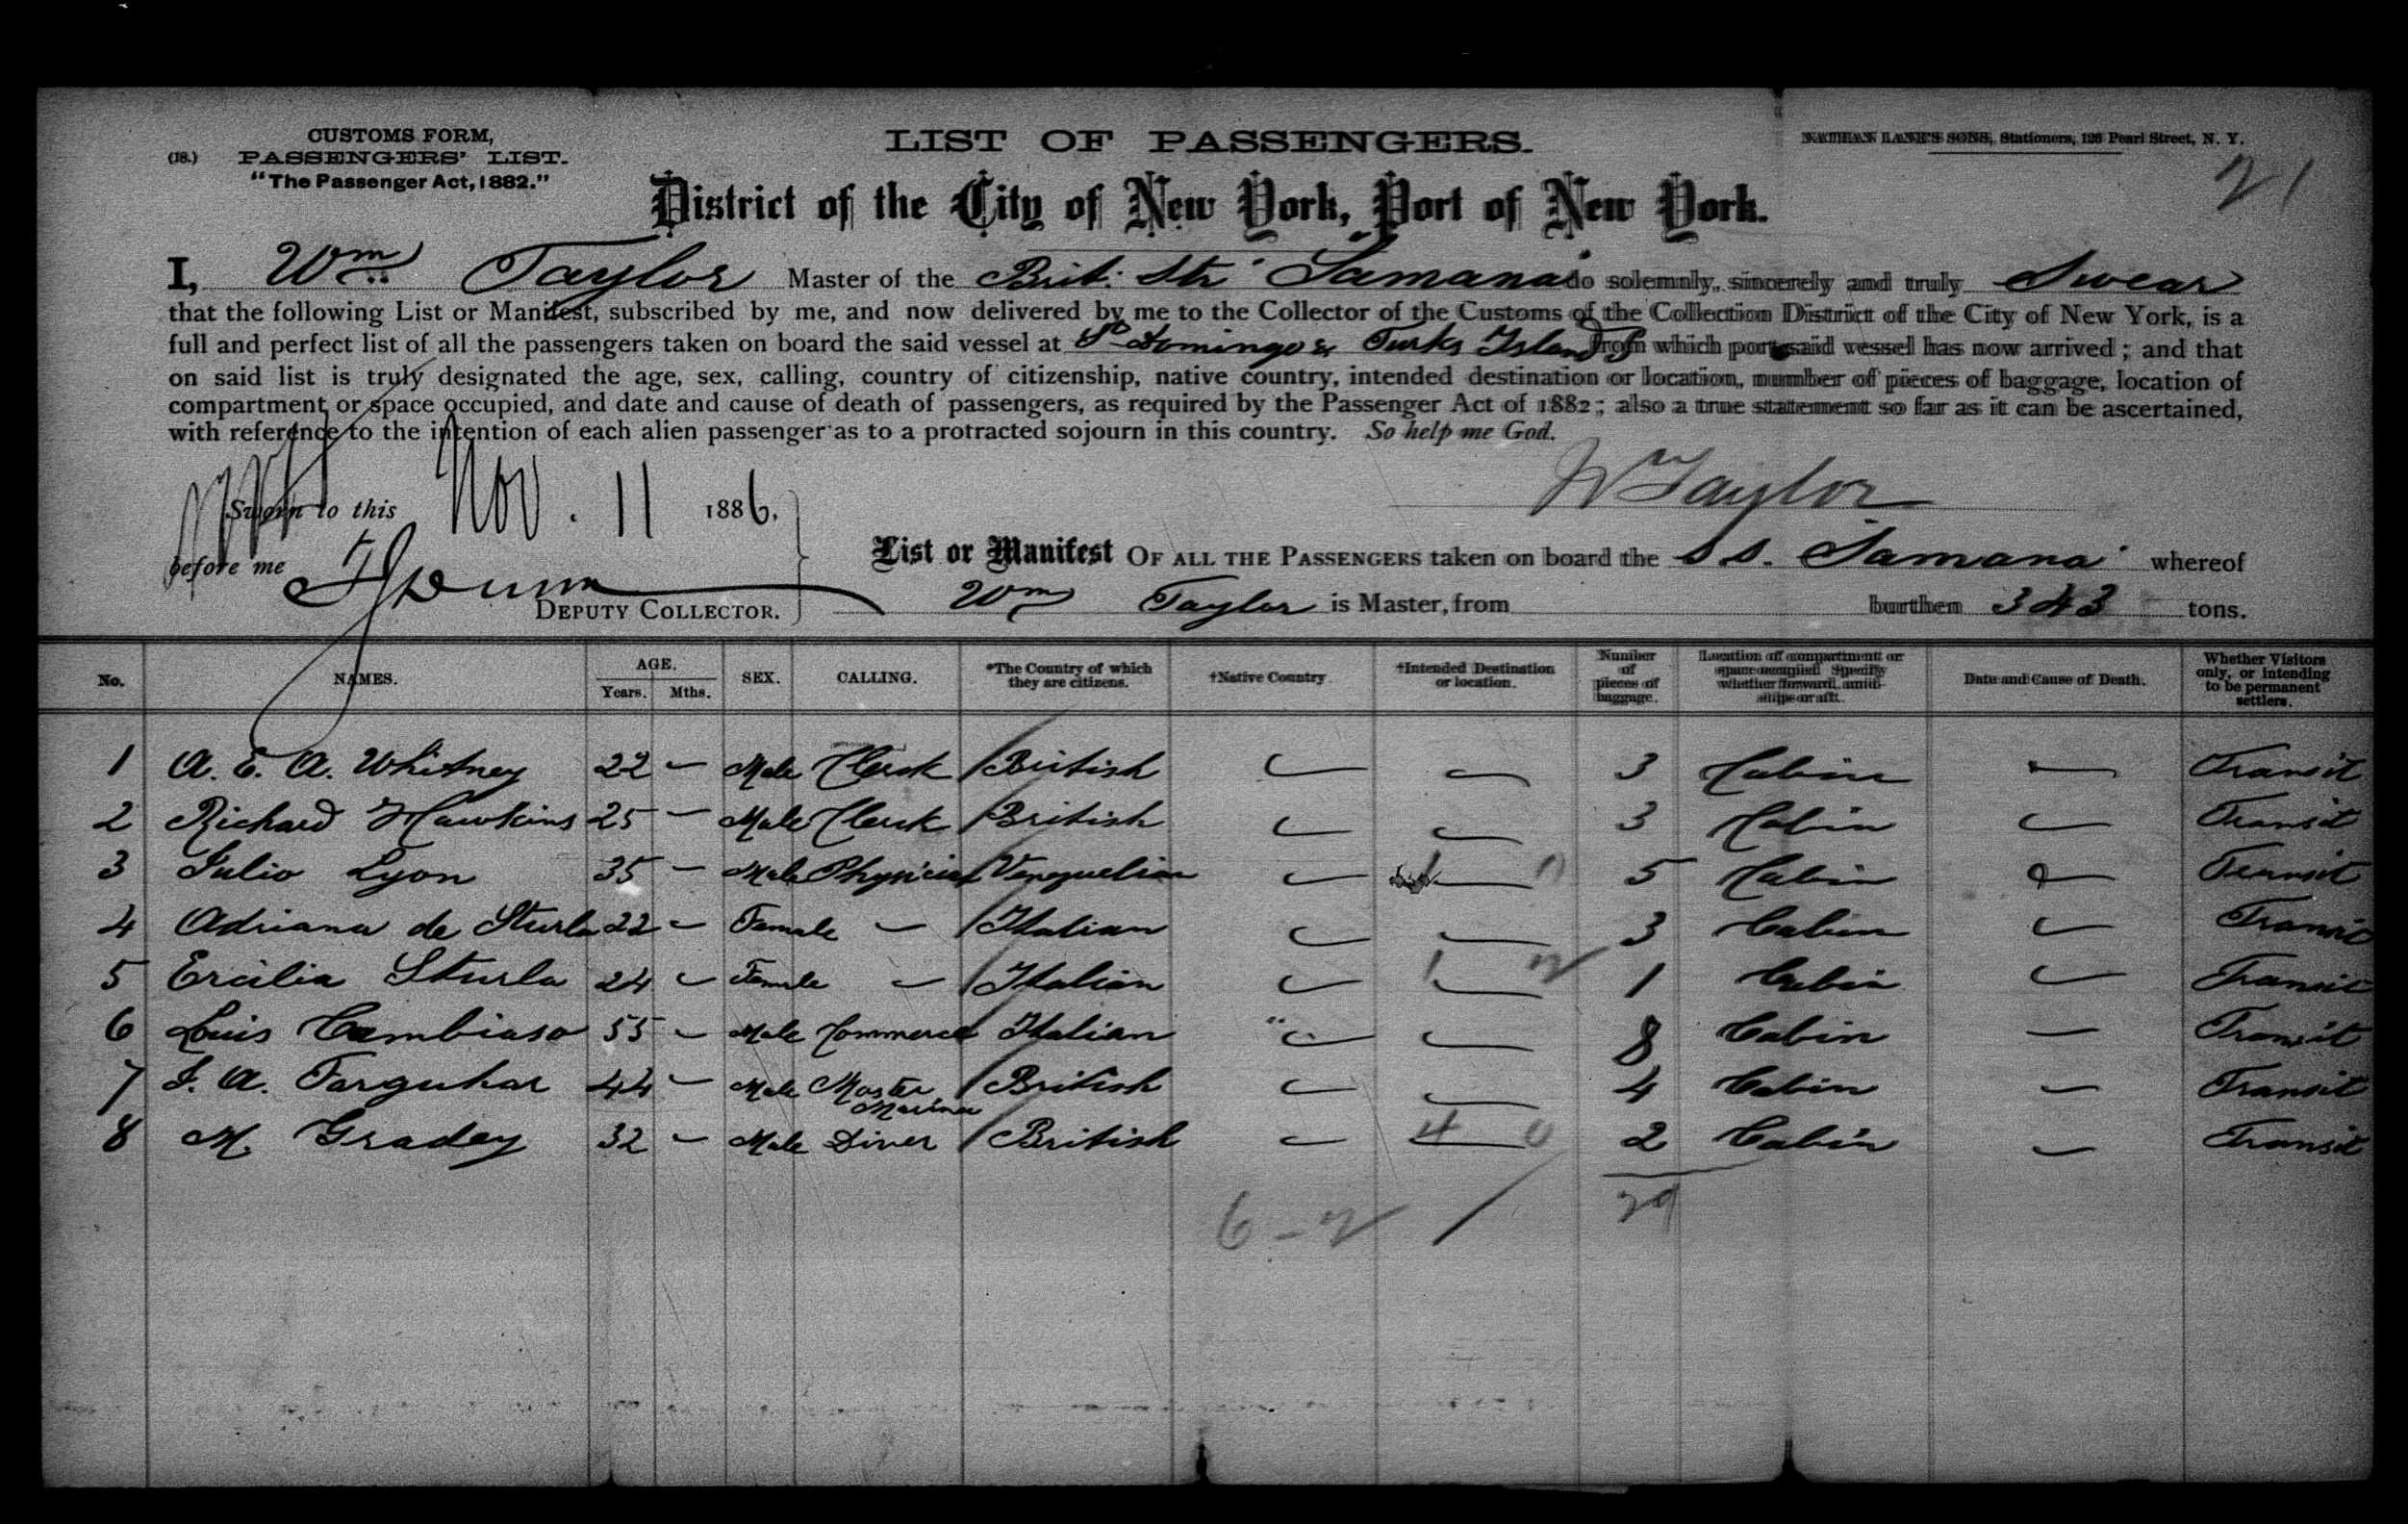 CUSTOMS FORM,
(18.) PASSENGERS' LIST.
"The Passenger Act, 1882."
LIST OF PASSENGERS.
NATHAN LANE'S SONS, Stationers, 126 Pearl Street, N. Y.
21
District of the City of New York, Port of New York.
I, Wm Taylor Master of the Brit. Str "Samana" do solemnly, sincerely and truly Swear
that the following List or Manifest, subscribed by me, and now delivered by me to the Collector of the Customs of the Collection District of the City of New York, is a
full and perfect list of all the passengers taken on board the said vessel at St Domingo & Turks Island from which port said vessel has now arrived; and that
on said list is truly designated the age, sex, calling, country of citizenship, native country, intended destination or location, number of pieces of baggage, location of
compartment or space occupied, and date and cause of death of passengers, as required by the Passenger Act of 1882; also a true statement so far as it can be ascertained,
with reference to the intention of each alien passenger as to a protracted sojourn in this country. So help me God.
W Taylor
Sworn to this Nov. 11 1886,
before me
DEPUTY COLLECTOR.
List or Manifest OF ALL THE PASSENGERS taken on board the S S. Samana whereof
Wm Taylor is Master, from burthen 343 tons.
No. NAMES. AGE. Years. Mths. SEX. CALLING. *The Country of which they are citizens. †Native Country. †Intended Destination or location. Number of pieces of baggage. Location of compartment or space occupied. Specify whether forward, amidships or aft. Date and Cause of Death. Whether Visitors only, or intending to be permanent settlers.
1 A. E. A. Whitney 22 — Male Clerk British — — 3 Cabin — Transit
2 Richard Hawkins 25 — Male Clerk British — — 3 Cabin — Transit
3 Julio Lyon 35 — Male Physician Venezuelian — — 5 Cabin — Transit
4 Adriana de Sturla 22 — Female — Italian — — 3 Cabin — Transit
5 Ercilia Sturla 24 — Female — Italian — — 1 Cabin — Transit
6 Luis Cambiaso 55 — Male Commerce Italian — — 8 Cabin — Transit
7 J. A. Farquhar 44 — Male Master Mariner British — — 4 Cabin — Transit
8 M. Gradey 32 — Male Diver British — 4 0 2 Cabin — Transit
6 - 2 29